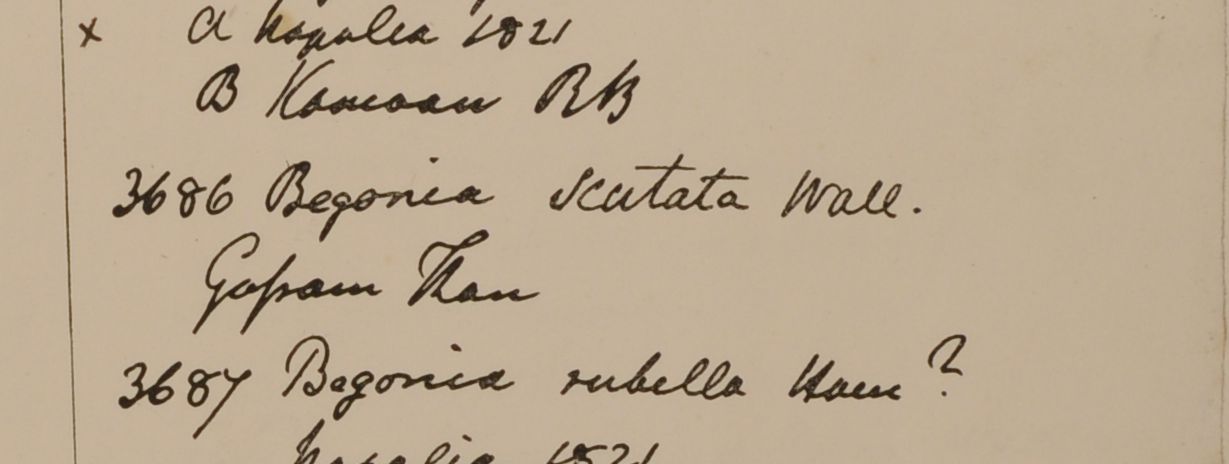 x a Napalia 1821
B Kamaon RB
3686 Begonia scutata Wall.
Gossam Than
3687 Begonia rubella Ham?
Napalia 1821